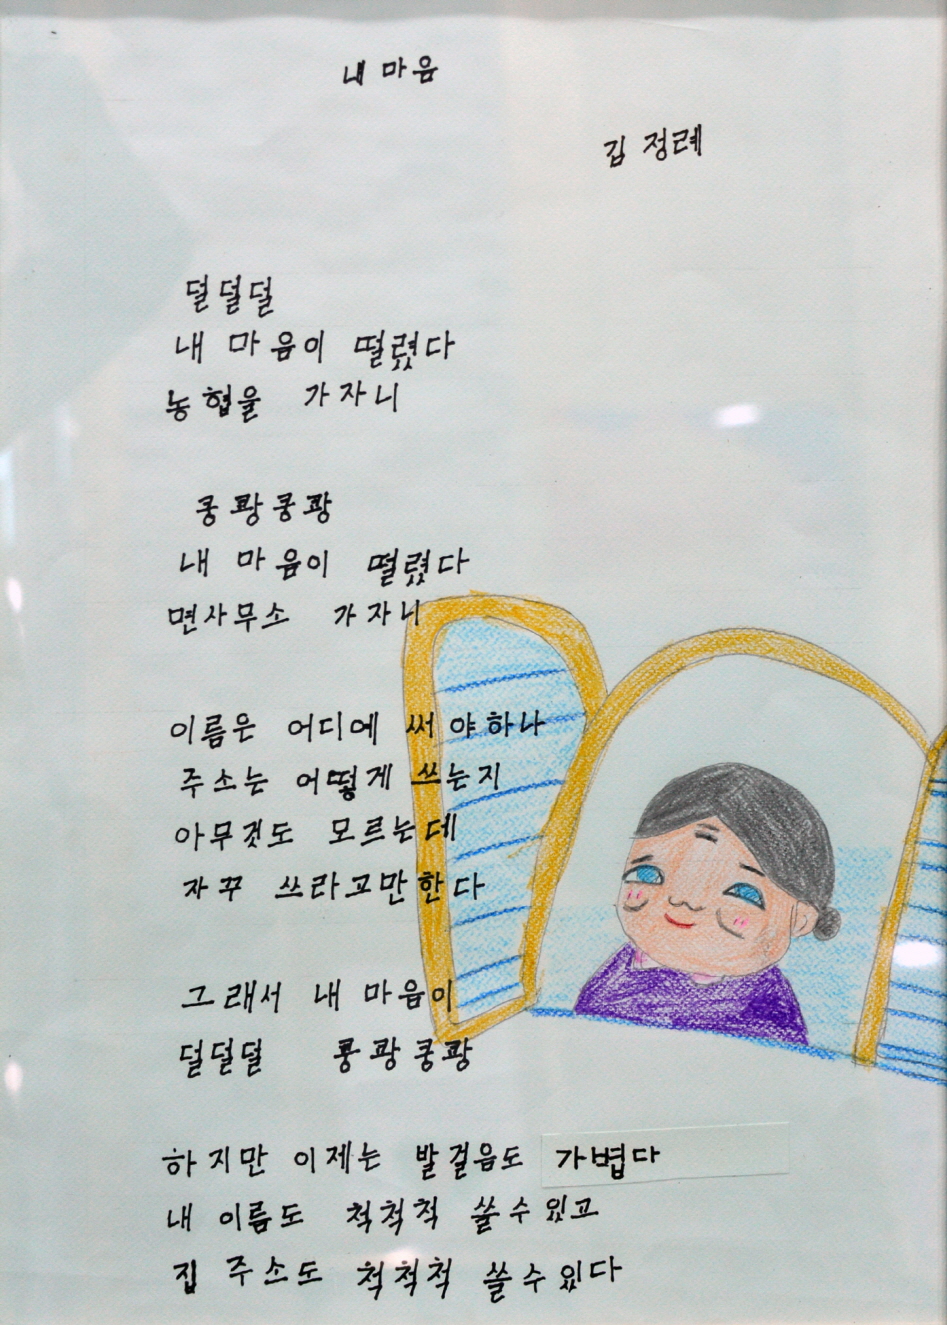 내 마음
김 정례
덜덜덜
내 마음이 떨렸다
농협을 가자니
쿵쾅쿵쾅
내 마음이 떨렸다
면사무소 가자니
이름은 어디에 써야하나
주소는 어떻게 쓰는지
아무것도 모르는데
자꾸 쓰라고만한다
그래서 내 마음이
덜덜덜 쿵쾅쿵쾅
하지만 이제는 발걸음도 가볍다
내 이름도 척척척 쓸수있고
집 주소도 척척척 쓸수있다